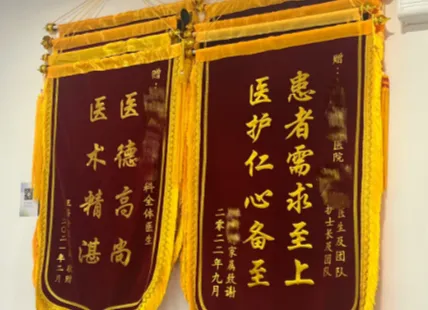 赠:
科全体医生
医德高尚
医术精湛
二〇二一年二月
赠:
医院
医生及团队
护士长及团队
患者需求至上
医护仁心备至
家属致谢
二零二二年九月